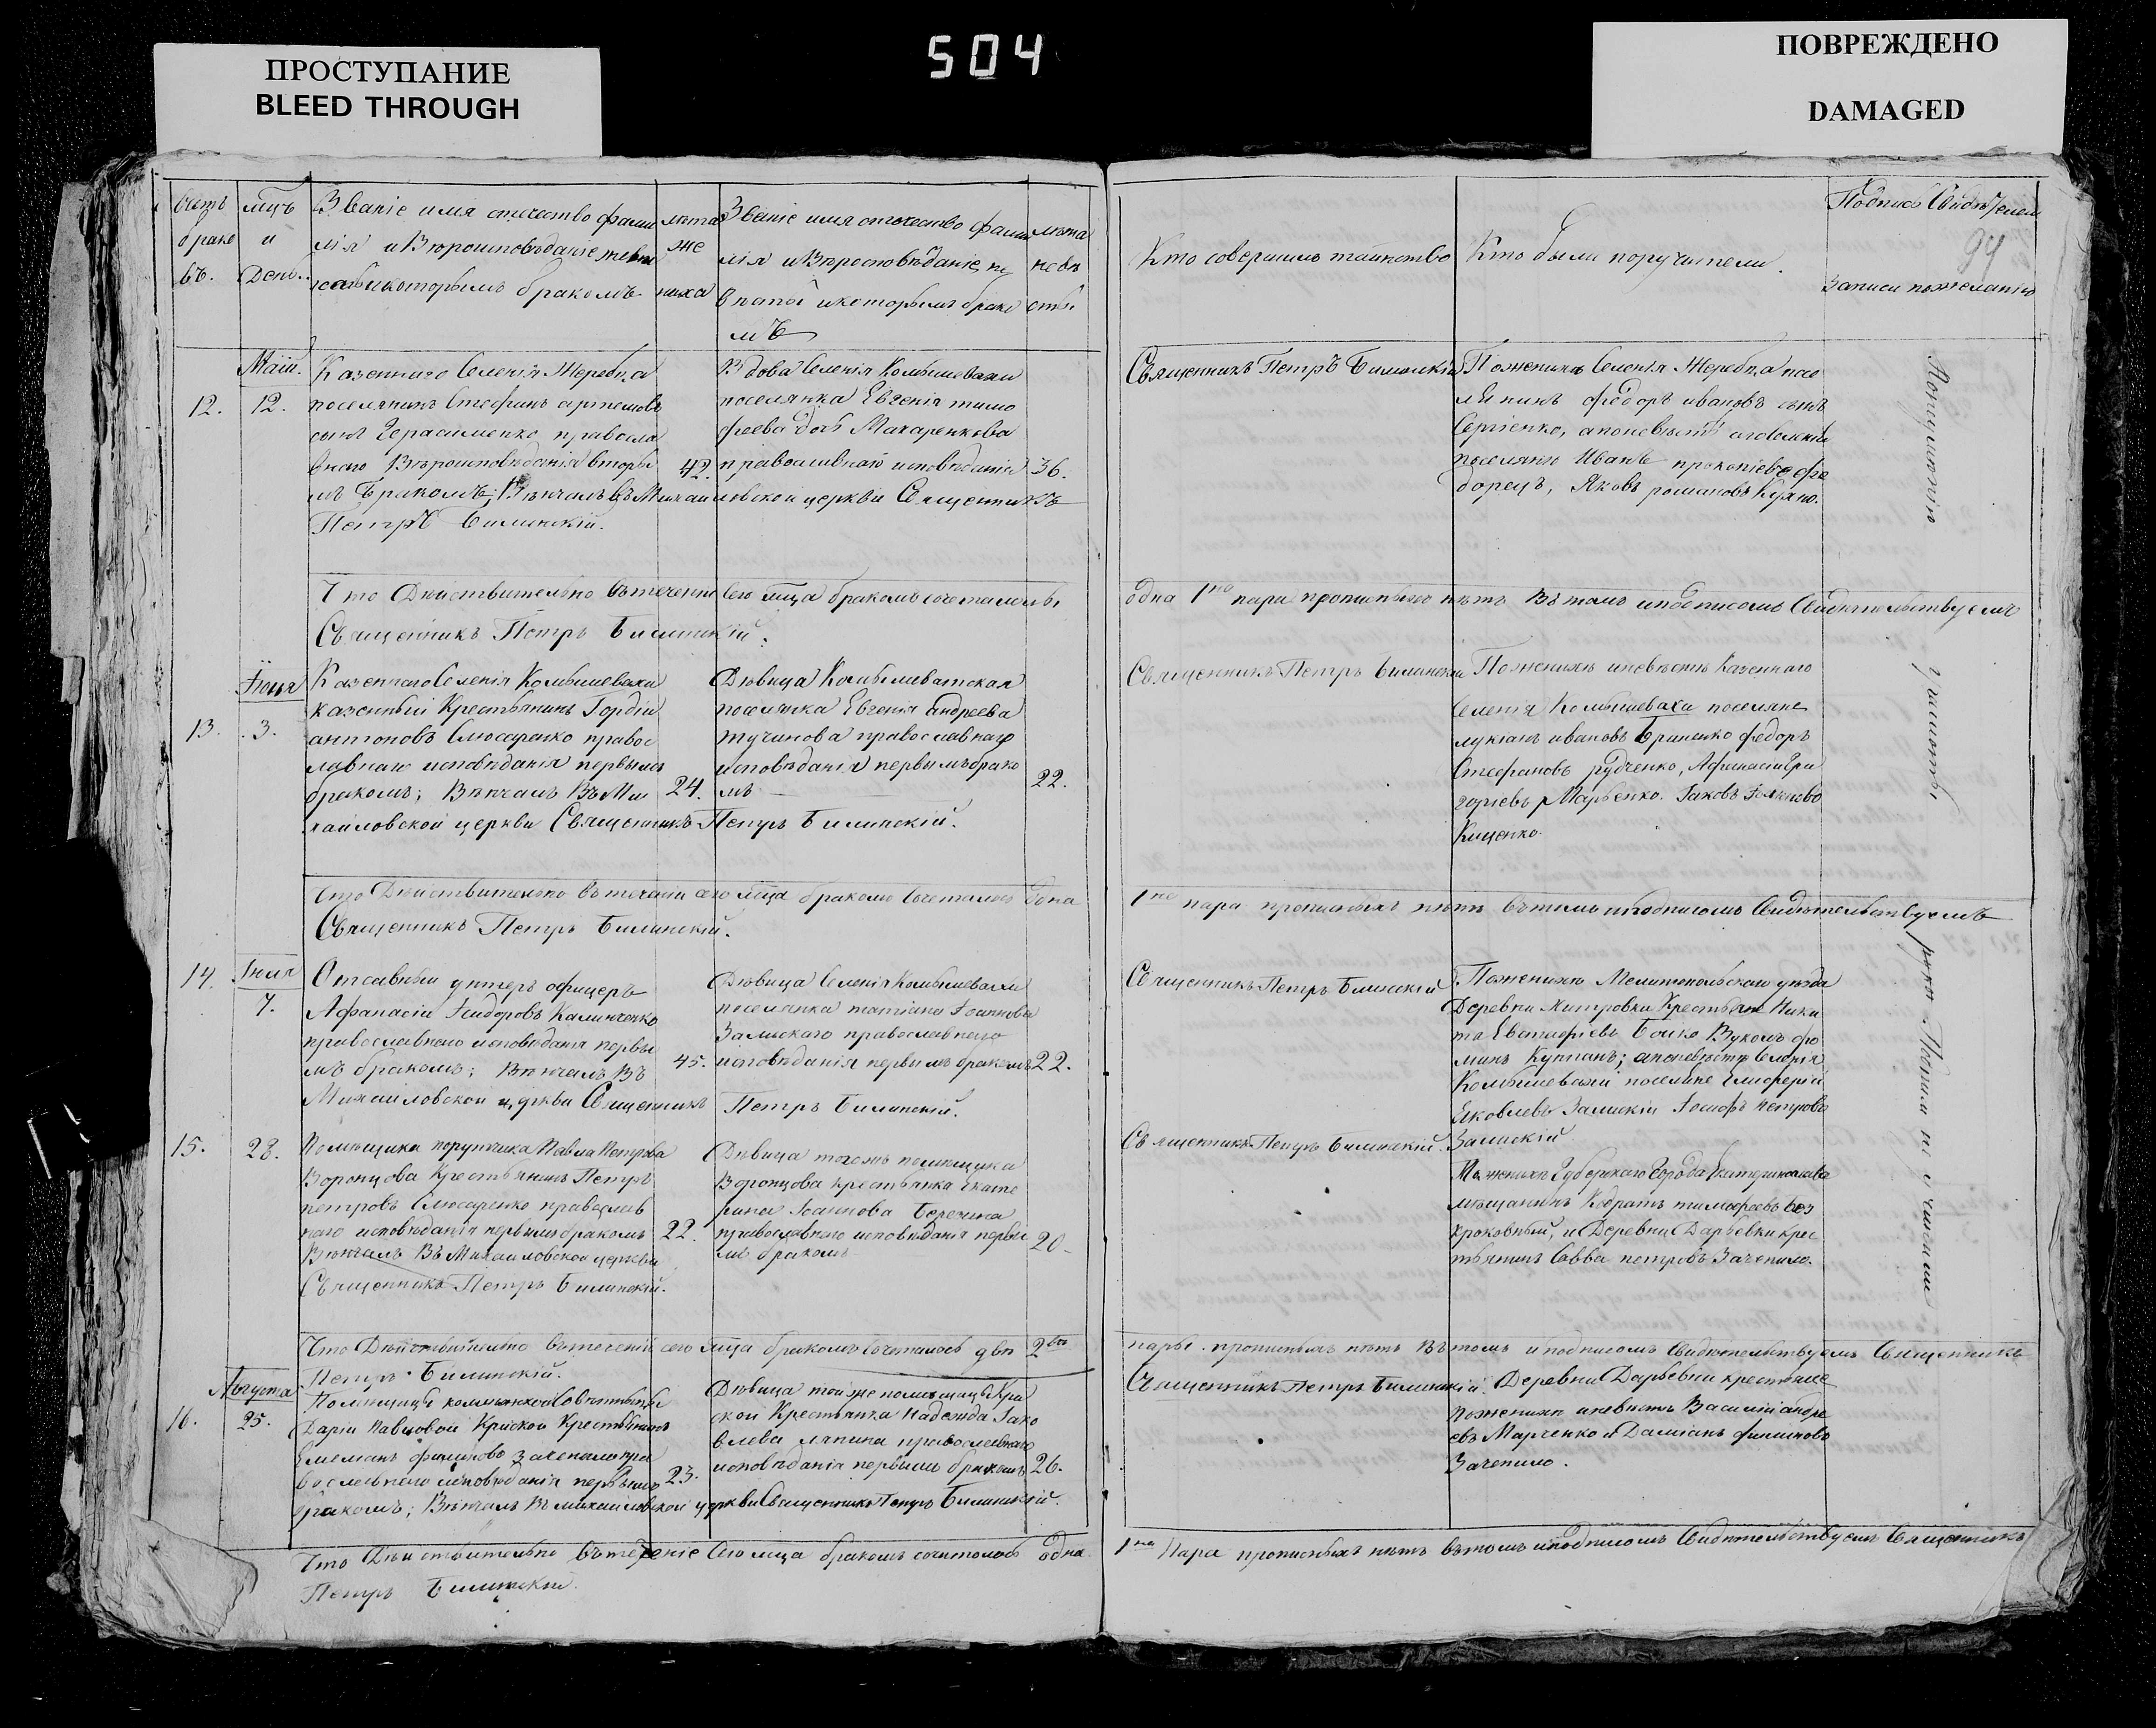 ПРОСТУПАНИЕ
BLEED THROUGH
504
ПОВРЕЖДЕНО
DAMAGED
мцъ
и
день.
Званіе имя отечество фами
лія и Вѣроисповѣданіе жени
и которымъ бракомъ
лѣта
же
ниха
Званіе имя отечество фами
лія и Вѣроисповѣданіе не
и которымъ брако
мъ
лѣта
невѣ
сты
Кто совершилъ таинство
Кто были поручители.
94
Записи по желанію
12.
Маій.
12.
Казеннаго Селенія Жеребца
поселянинъ Стефанъ артемовъ
сынъ Герасименко правосла
внаго Вѣроисповѣданія вторы
мъ бракомъ; Вѣнчалъ Въ Михаиловской церкви Священникъ
Петръ Билинскій.
42.
Вдова Селенія Комышевахи
поселянка Евгенія тимо
феева дочь Макаренкова
православнаго исповѣданія
36.
Священникъ Петръ Билинскій
По женихѣ Селенія Жеребца посе
лянинъ федоръ ивановъ сынъ
Сергіенко, а по невѣстѣ
поселяне Иванъ прокопіевъ фе
дорецъ, Яковъ романовъ
Что Дѣйствительно въ теченіи сего мца бракомъ сочеталось
одна 1на пара прописныхъ нѣтъ Въ томъ и подписомъ Свидѣтельствуемъ
Священникъ Петръ Билинскій.
13.
Іюня
3.
Казеннаго Селенія Комышевахи
казенный Крестьянинъ Гордій
антоновъ Слюсаренко правос
лавнаго исповѣданія первымъ
бракомъ; Вѣнчалъ Въ Ми
хаиловской церкви Священникъ Петръ Билинскій.
24.
Дѣвица Комышеватская
поселянка Евгенія андреева
православнаго
исповѣданія первымъ брако
мъ
22.
Священникъ Петръ Билинскій
По женихѣ и невѣстѣ Казеннаго
Селенія Комышевахи поселяне
лукіанъ ивановъ Гриненко федоръ
Стефановъ рудченко, Афанасій Гри
горіевъ Марченко. Іаковъ
Кищенко.
Что Дѣйствительно въ теченіи сего мца бракомъ сочеталось одна
1на пара прописныхъ нѣтъ въ томъ и подписомъ Свидѣтельствуемъ
Священникъ Петръ Билинскій.
14.
Іюля
7.
Отставный унтеръ офицеръ
Афанасій Исидоровъ Калинченко
православнаго исповѣданія первы
мъ бракомъ; Вѣнчалъ Въ
Михаиловской церкви Священникъ Петръ Билинскій.
45.
Дѣвица Селенія Комышевахи
поселянка татіана Іоаннова
православнаго
исповѣданія первымъ бракомъ
22.
Священникъ Петръ Билинскій
По женихѣ Мелитопольскаго уѣзда
Деревни Крестьяне Ники
та Евстафіевъ Бойко
минъ а по невѣстѣ Селенія
Комышевахи поселяне
Яковлевъ Залискій Іосифъ петровъ
Залискій
15.
28.
Помѣщика порутчика Павла Петрова
Воронцова Крестьянинъ Петръ
петровъ Слюсаренко православ
наго исповѣданія первымъ бракомъ
Вѣнчалъ Въ Михаиловской церкви
Священникъ Петръ Билинскій.
22.
Дѣвица тогожъ помѣщика
Воронцова крестьянка Екате
рина Іоаннова
православнаго исповѣданія первы
мъ бракомъ
20.
Священникъ Петръ Билинскій.
По женихѣ Губернскаго Города Екатеринослава
мѣщанинъ Кодратъ тимофеевъ без
кровный, и Деревни Дарьевки крес
тьянинъ Савва петровъ Зачепило.
Что Дѣйствительно въ теченіи сего мца бракомъ сочеталось двѣ 2ве
пары прописныхъ нѣтъ Въ томъ и подписомъ Свидѣтельствуемъ Священникъ
Петръ Билинскій.
16.
Августа
25.
Помѣщицы
Даріи Павловой Крестьянинъ
филиповъ зачепило пра
вославнаго исповѣданія первымъ
бракомъ; Вѣнчалъ Въ михаиловской церкви Священникъ Петръ Билинскій.
23.
Дѣвица тойже помѣщицы
Крестьянка Надежда Іако
влева ляпина православнаго
исповѣданія первымъ бракомъ
26.
Священникъ Петръ Билинскій.
Деревни Дарьевки крестьяне
по женихѣ и невѣстѣ Василій андре
евъ Марченко и Даміанъ филиповъ
Зачепило.
Что Дѣйствительно въ теченіе Сего мца бракомъ сочеталось одна
1на Пара прописныхъ нѣтъ въ томъ и подписомъ Свидѣтельствуемъ Священникъ
Петръ Билинскій.